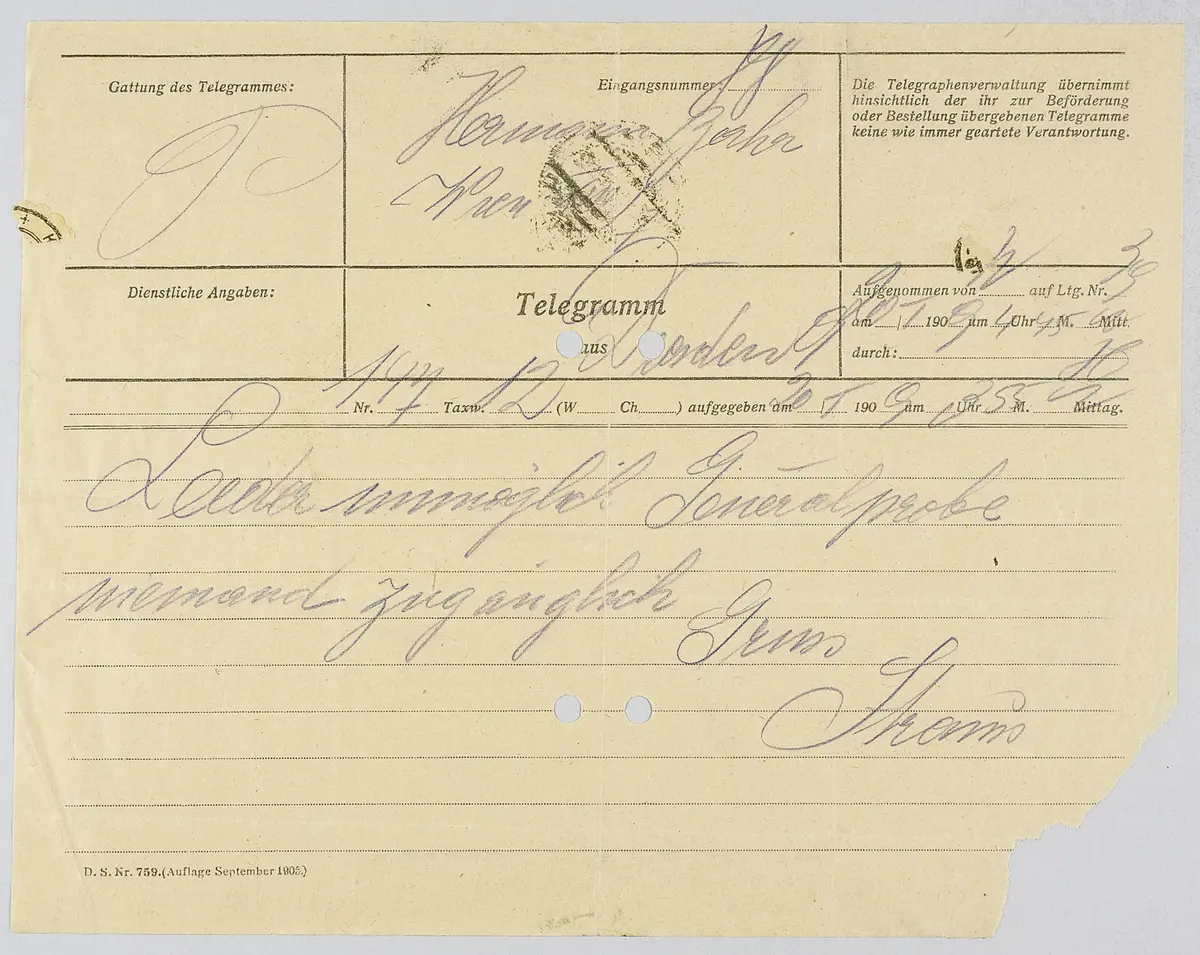 Gattung des Telegrammes:
Eingangsnummer:
Die Telegraphenverwaltung übernimmt
hinsichtlich der ihr zur Beförderung
oder Bestellung übergebenen Telegramme
keine wie immer geartete Verantwortung.
Hermann Bahr
Wien
Dienstliche Angaben:
Telegramm
aus
Aufgenommen von auf Ltg. Nr. 39
am 20 | I 190 9 um 4 Uhr 45 M. Mitt.
durch:
Nr. 147 Taxw. 12 (W Ch ) aufgegeben am 20 | I 190 9 um 3 Uhr 55 M. Mittag.
Leider unmöglich Generalprobe
niemand zugänglich
Gruss
Strauss
D. S. Nr. 759. (Auflage September 1905.)